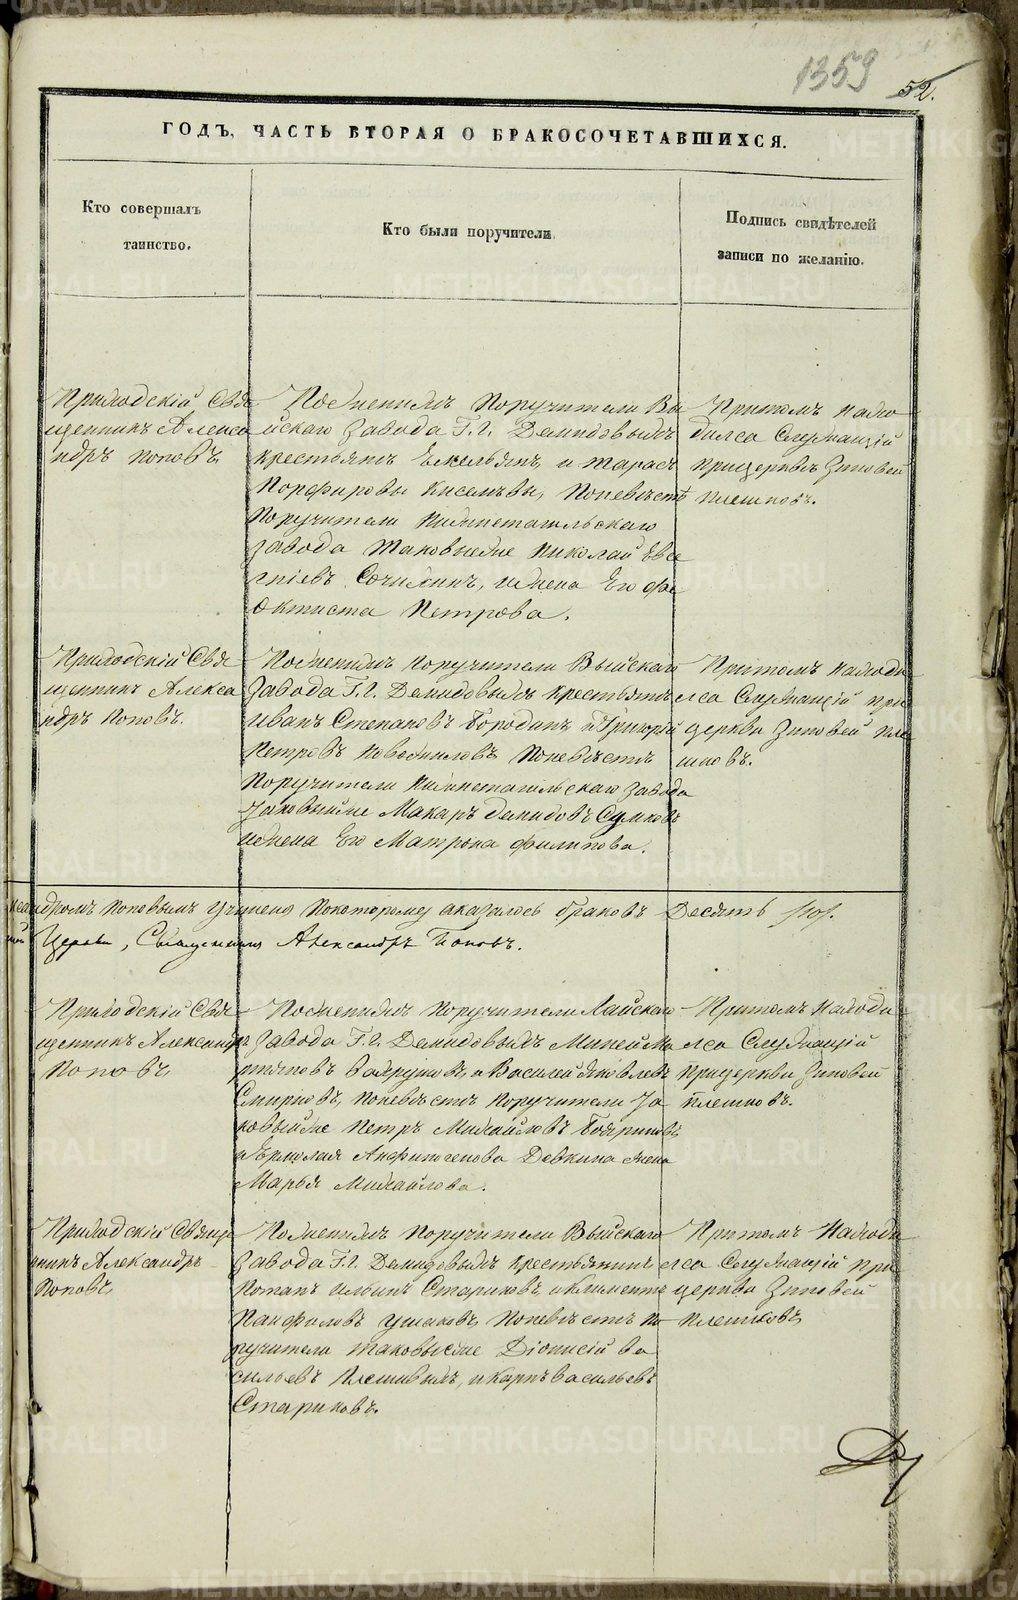 1359
52.
ГОДЪ, ЧАСТЬ ВТОРАЯ О БРАКОСОЧЕТАВШИХСЯ.
Кто совершалъ
таинство.
Кто были поручители.
Подпись свидѣтелей
записи по желанію.
Приходскій Свя
щенникъ Алекса
ндръ Поповъ.
По женихѣ поручители Вы
йскаго завода Г.г. Демидовыхъ
крестьянъ Емельянъ, и Тарасъ
Порфировы Киселевы, по невѣстѣ
поручители Нижнетагильскаго
завода таковые же Николай Евге
ніевъ и жена Его Фе
октиста Петрова.
При томъ нахо
дился Служащій
при церквѣ Зиновей
Плешковъ.
Приходскій Свя
щенникъ Алекса
ндръ Поповъ.
По женихѣ поручители Выйскаго
завода Г.г. Демидовыхъ крестьянъ
Иванъ Степановъ Бородинъ и Григрій
Петровъ Новосиловъ По невѣстѣ
Поручители Нижнетагильскаго завода
таковыйже Макаръ Демидовъ Сумковъ
и жена Его Матрона Филипова.
При томъ находи
лся Служащій при
церкви Зиновей Пле
шковъ.
ксандромъ Поповымъ учинена по которому оказалось браковъ Десять /10/.
Церкви, Священникъ Александръ Поповъ.
Приходскій Свя
щенникъ Александръ
Поповъ
По женихѣ поручители Лайскаго
завода Г.г. Демидовыхъ Миней Ма
ртяновъ и Василей Яковлевъ
Смирновъ, по невѣстѣ поручители та
ковыйже Петръ Михайловъ
и Ермолая Анфиногенова Девкина жена
Марья Михайлова.
При томъ находи
лся Служащій
при церкви Зиновей
Плешковъ.
Приходскій Священ
никъ Александръ
Поповъ
По женихѣ поручители Выйскаго
завода Г.г. Демидовыхъ крестьянинъ
Потапъ Ильинъ Стариковъ, и Климентъ
Панфиловъ Ушаковъ, По невѣстѣ по
ручители таковыеже Діонисій Ва
сильевъ и Карпъ Васильевъ
Стариковъ.
При томъ Находи
лся Служащій при
церкви Зиновей
Плешковъ
METRIKI.GASO-URAL.RU